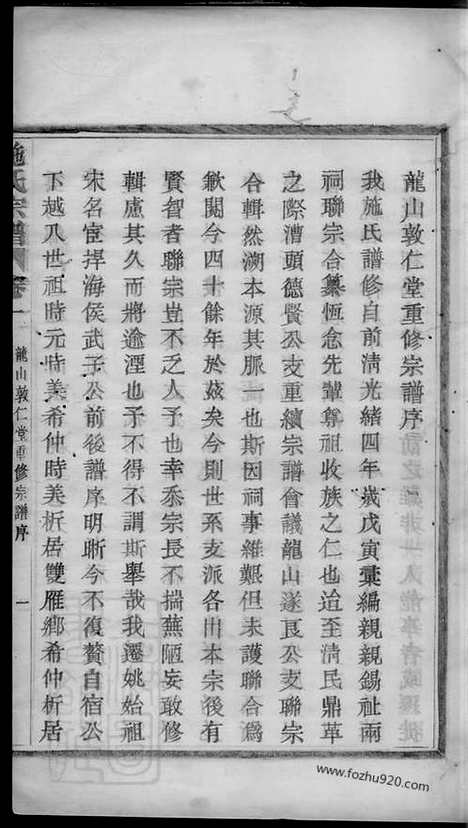 龍山敦仁堂重修宗譜序
我施氏譜修自前清光緒四年歲戊寅彙編親親錫祉兩
祠聯宗合纂恆念先輩尊祖收族之仁也迨至清民鼎革
之際漕頭德賢公支重續宗譜會議龍山遂良公支聯宗
合輯然溯本源其脉一也斯因祠事維艱但未護聯合為
歉閱今四十餘年於茲矣今則世系支派各出本宗後有
賢智者聯宗豈不乏人予也幸忝宗長不揣蕪陋妄敢修
輯慮其久而將逾湮也予不得不謂斯舉哉我遷姚始祖
宋名宦捍海侯武子公前後譜序明晰今不復贅自宿公
下越八世祖時元時美希仲時美析居雙雁鄉希仲析居
施氏宗譜 卷一
龍山敦仁堂重修宗譜序
一
www.fozhu920.com